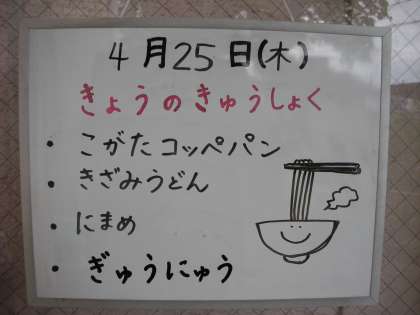 4月25日(木)
きょうのきゅうしょく
・こがたコッペパン
・きざみうどん
・にまめ
・ぎゅうにゅう